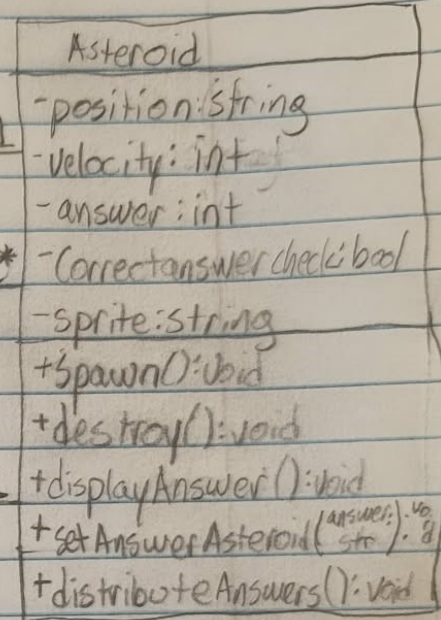 Asteroid
-position:string
-velocity: int
-answer: int
* -Correctanswercheck:bool
-sprite:string
+Spawn():void
+destroy():void
+displayAnswer():void
+setAnswerAsteroid(answer: str):void
+distributeAnswers():void